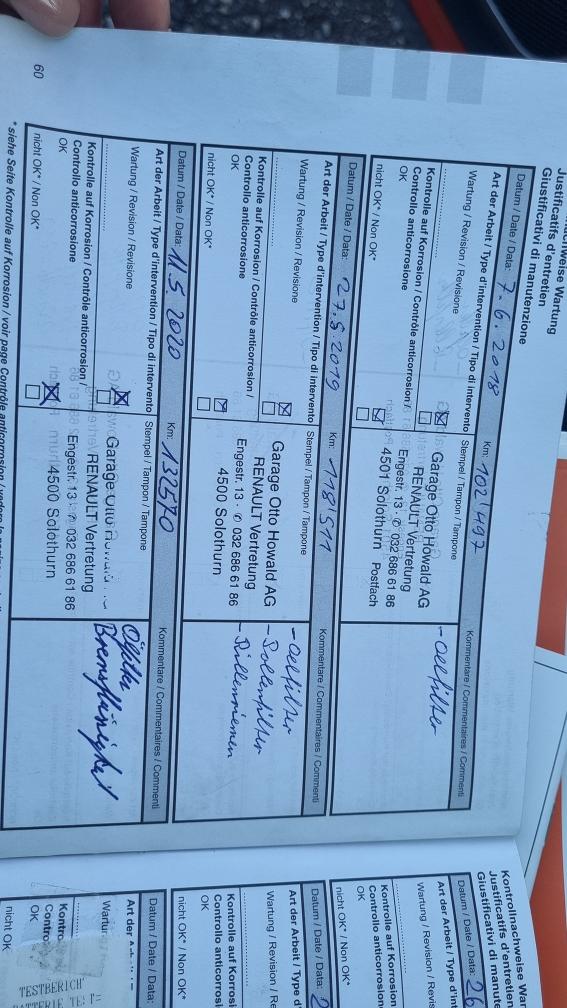 Justificatifs d'entretien
Giustificativi di manutenzione
Datum / Date / Data: 7.6.2018 Km: 102'497
Art der Arbeit / Type d'intervention / Tipo di intervento Stempel / Tampon / Tampone Kommentare / Commentaires / Commenti
Wartung / Revision / Revisione
Garage Otto Howald AG
RENAULT Vertretung
Engestr. 13 · ✆ 032 686 61 86
4501 Solothurn Postfach
- Oelfilter
Kontrolle auf Korrosion / Contrôle anticorrosion /
Controllo anticorrosione
OK
nicht OK* / Non OK*
Datum / Date / Data: 27.5.2019 Km: 118'511
Art der Arbeit / Type d'intervention / Tipo di intervento Stempel / Tampon / Tampone Kommentare / Commentaires / Commenti
Wartung / Revision / Revisione
Garage Otto Howald AG
RENAULT Vertretung
Engestr. 13 · ✆ 032 686 61 86
4500 Solothurn
- Oelfilter
- Pollenfilter
- Rillenriemen
Kontrolle auf Korrosion / Contrôle anticorrosion /
Controllo anticorrosione
OK
nicht OK* / Non OK*
Datum / Date / Data: 11.5.2020 Km: 132570
Art der Arbeit / Type d'intervention / Tipo di intervento Stempel / Tampon / Tampone Kommentare / Commentaires / Commenti
Wartung / Revision / Revisione
Garage Otto
RENAULT Vertretung
Engestr. 13 ✆ 032 686 61 86
4500 Solothurn
Bremsflüssigkeit
Kontrolle auf Korrosion / Contrôle anticorrosion /
Controllo anticorrosione
OK
nicht OK* / Non OK*
* siehe Seite Kontrolle auf Korrosion / voir page Contrôle anticorrosion /
60
Kontrollnachweise
Justificatifs d'entretien
Giustificativi di
Datum / Date / Data:
Art der Arbeit / Type
Wartung / Revision
Kontrolle auf
Controllo anticorrosione
OK
nicht OK* / Non OK*
Datum / Date / Data:
Art der Arbeit / Type
Wartung / Revision
Kontrolle auf
Controllo
OK
nicht OK* / Non OK*
Datum / Date / Data:
Art der
OK
nicht OK